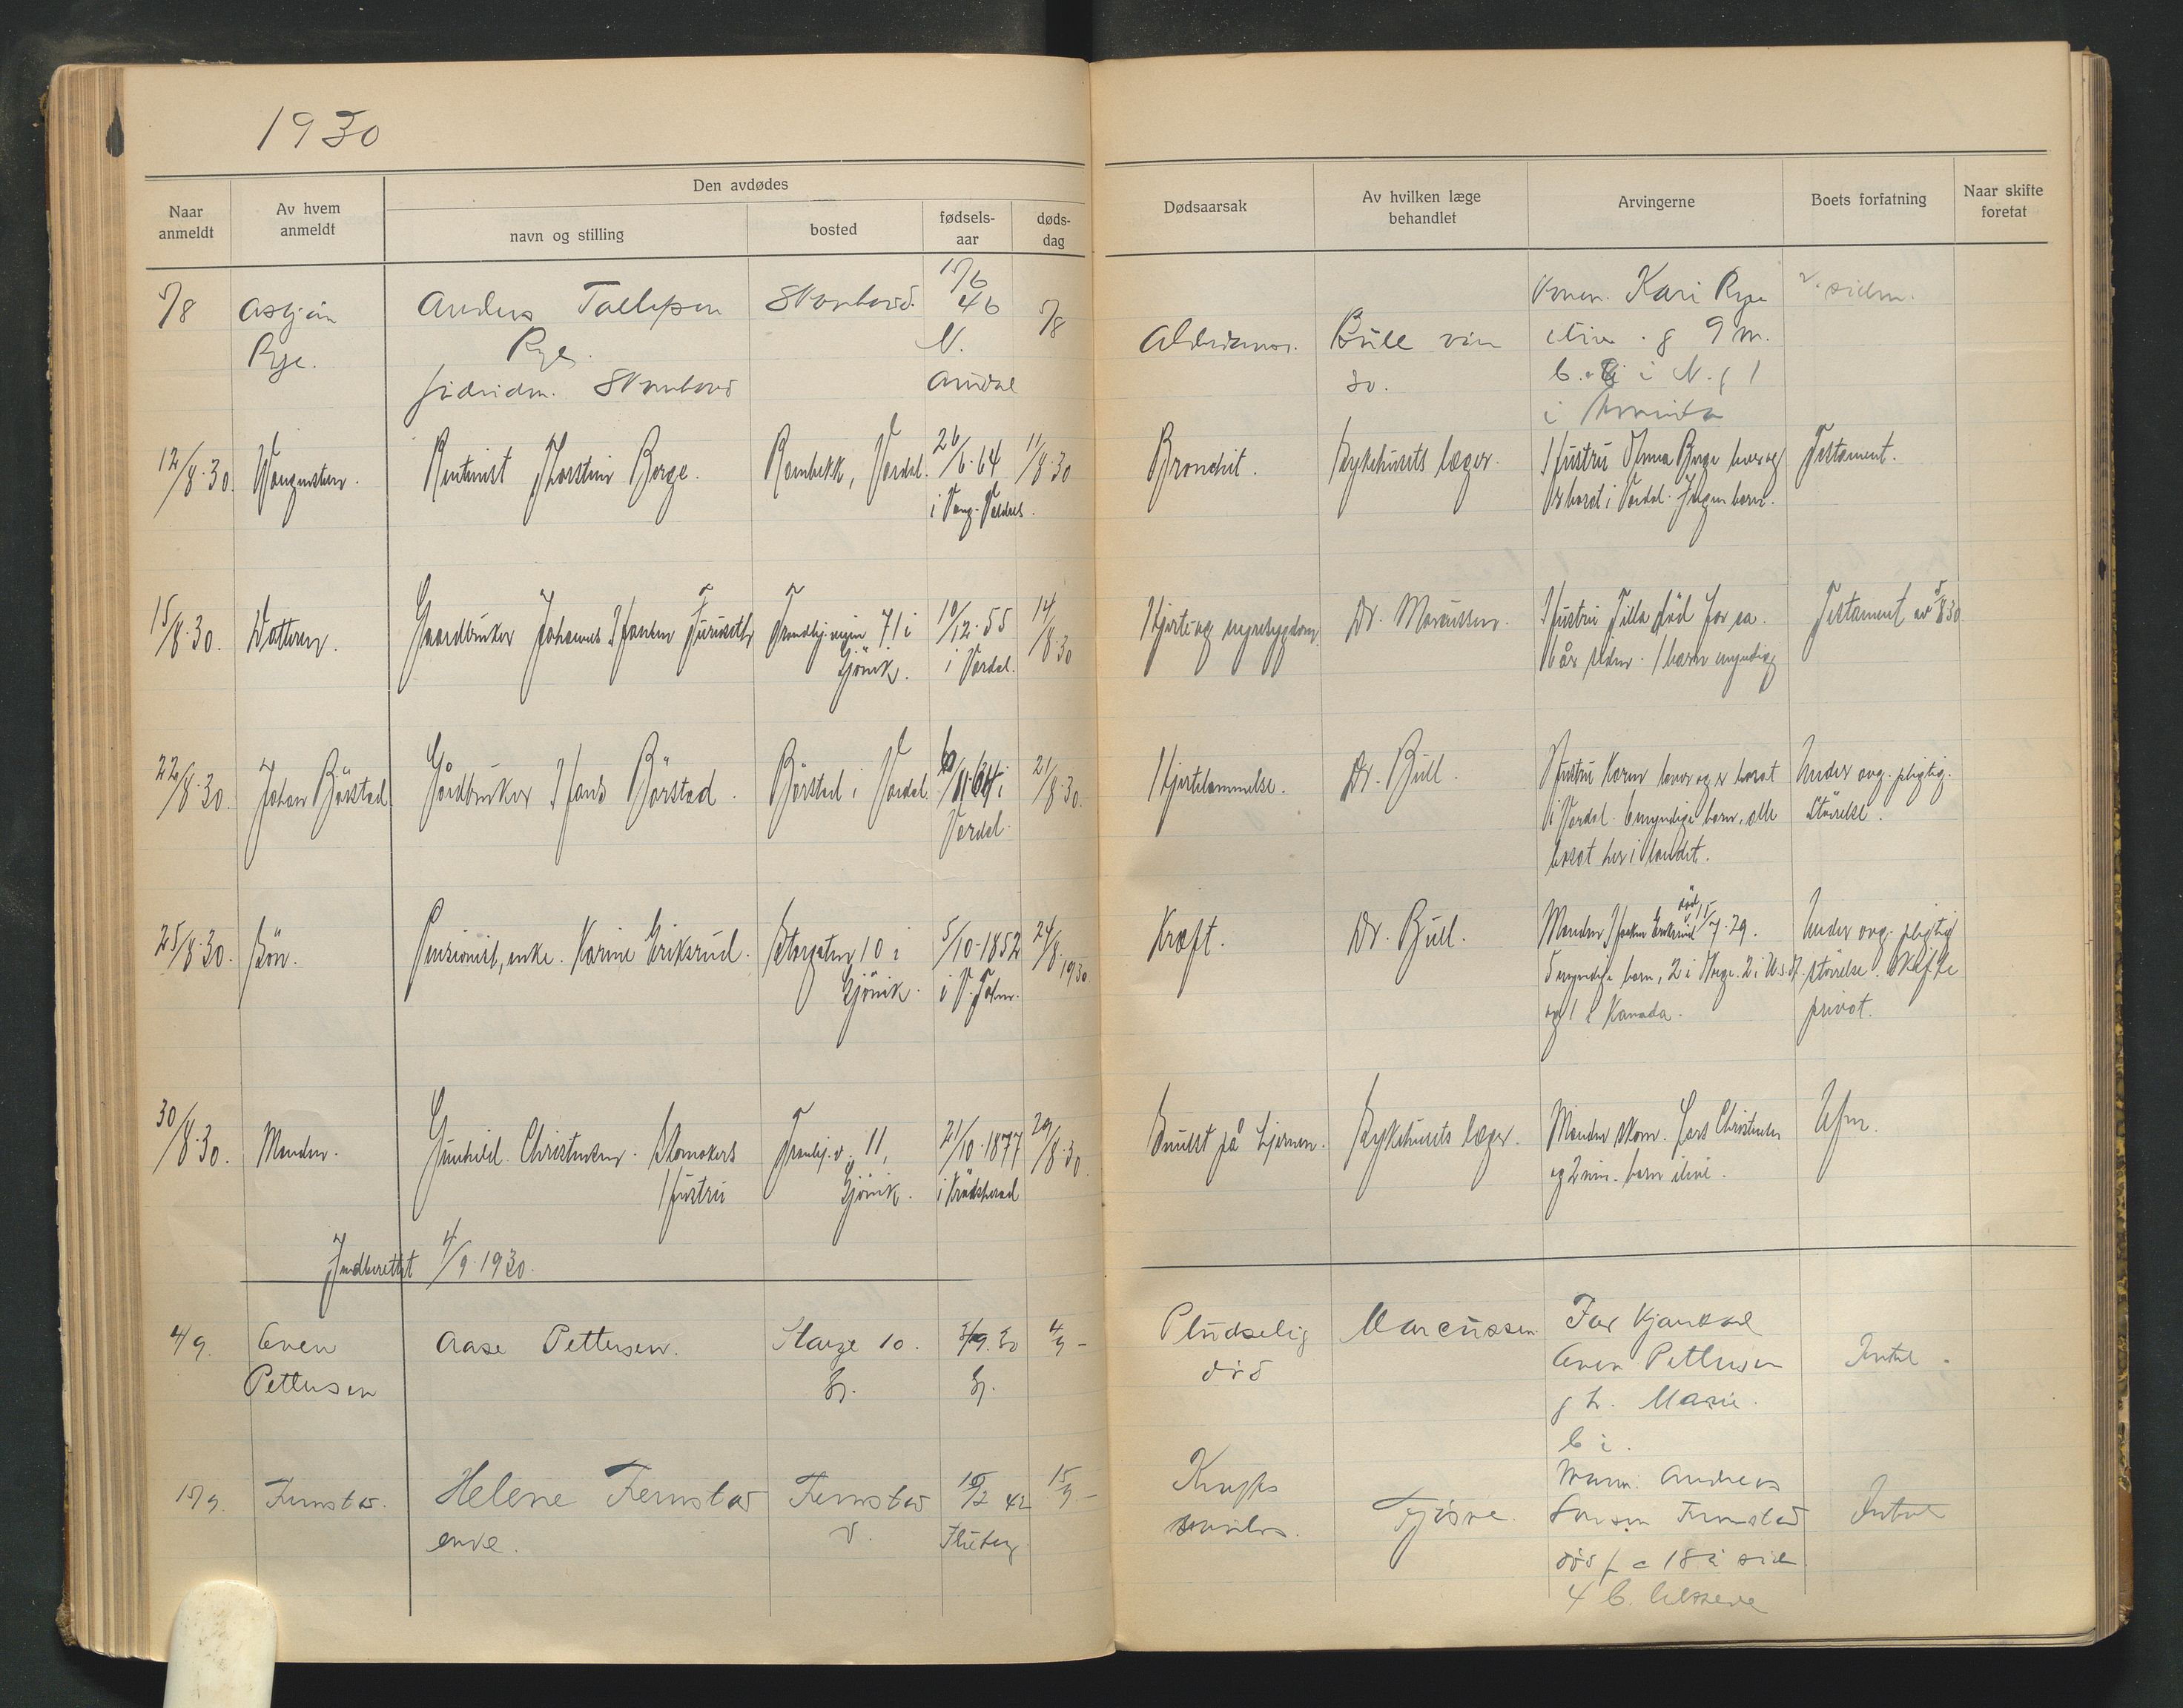 1930
Naar anmeldt
Av hvem anmeldt
Den avdødes
navn og stilling
bosted
fødsels-aar
døds-dag
Dødsaarsak
Av hvilken læge behandlet
Arvingerne
Boets forfatning
Naar skifte foretat
5/8
Asbjørn
Rye.
Anders Tollefsen
Rye.
Skonhovd
15/6
46
N.
5/8
Bull
Konen Kari Rye
9 m.
b. i N. g 1
i
12/8.30.
Rentenist Thorstein Berge.
Rambekk, Vardal.
26/6.64
i Vang. Valdres.
11/8.30
Bronchit.
Sykehusets læger.
Hustru Anna Berge lever og
er bosat i Vardal. Ingen barn.
Testament.
15/8.30.
Gaardbruker Johannes Hansen Furuseth
Trondhj.vegen 71 i
Gjövik.
10/12.55
i Vardal.
14/8.30
Hjerte og nyresygdom.
Dr. Marcussen.
Hustru Tilla död for ca.
16 år siden. 1 barn myndig
Testament av 5/8 30
22/8.30.
Johan Börstad
Gårdbruker Hans Börstad.
Börstad i Vardal
/11.64 i
Vardal.
21/8.30.
Hjertelammelse.
Dr. Bull.
Hustru Karen lever og er bosat
i Vardal. 6 myndige barn, alle
bosat her i landet.
Under avg. pligtig.
Störrelse.
25/8.30.
Sön.
Pensionist, enke. Karine Eriksrud.
Storgaten 10 i
Gjövik.
5/10-1852
i V. Toten.
24/8.1930
Kræft.
Dr. Bull.
Manden Haakon Eriksrud död 15/7.29.
5 myndige barn, 2 i Norge. 2 i U.S.A.
og 1 i Kanada.
Under avg. pligtig
störrelse. Skifte
privat.
30/8.30.
Manden.
Gunhild Christensen. Skomakers
Hustru
Trondhj.v. 11,
Gjövik.
21/10-1877
i Krödsherad
29/8.30.
Svulst på hjernen.
Sykehusets læger.
Manden skom. Lars Christensen
og 2 min. barn ilive.
Ufm.
Indberettet 4/9.1930.
4/9.
Even
Pettersen
Aase Pettersen.
Storg 10.
Gj.
3/9.30
Gj.
4/9 -
Pludselig
död
Marcussen
Far
Even Pettersen
g h. Marie.
b i.
Intet.
15/9.
Fernstad.
Helene Fernstad
enke.
Fernstad
V.
15/2 42
15/9 -
Gjösne.
Mann. Andreas
Larsen Fernstad
död f ca 18 å sid
4 b.
Intet